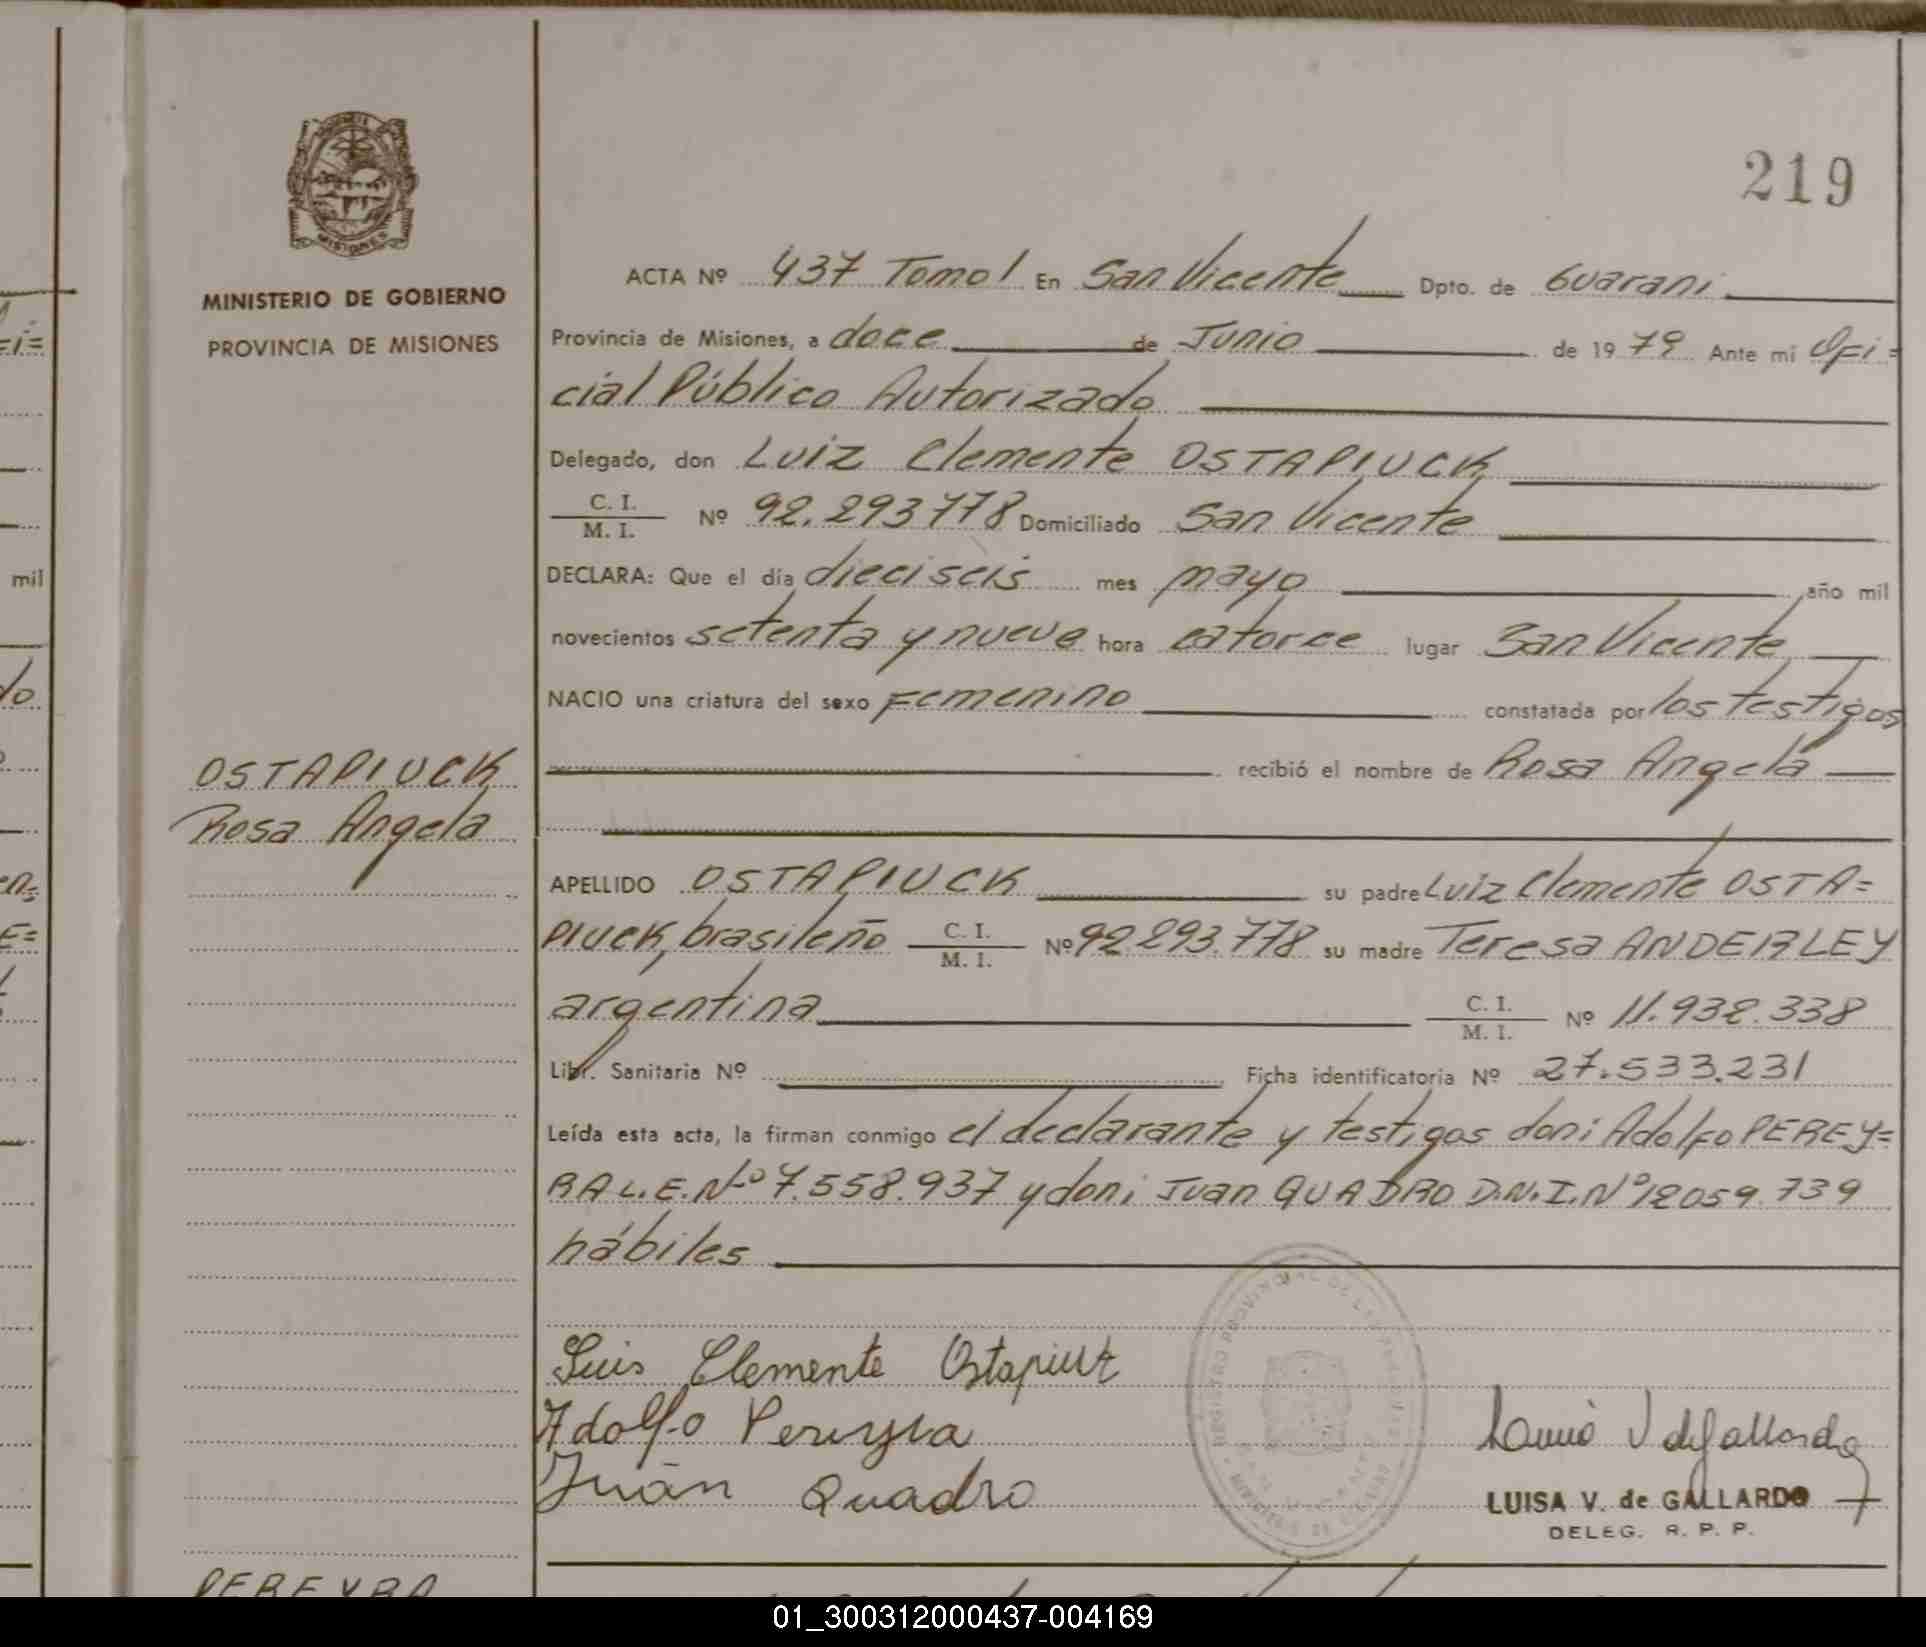 219
MINISTERIO DE GOBIERNO
PROVINCIA DE MISIONES
ACTA Nº 437 Tomo I En San Vicente Dpto. de Guarani
Provincia de Misiones, a doce de Junio de 1979 Ante mi Ofi=
cial Público Autorizado
Delegado, don Luiz Clemente OSTAPIUCK
C. I.
M. I. Nº 92.293778 Domiciliado San Vicente
DECLARA: Que el día dieciseis mes mayo año mil
novecientos setenta y nueve hora catorce lugar San Vicente
NACIO una criatura del sexo Femenino constatada por los testigos
recibió el nombre de Rosa Angela
OSTAPIUCK
Rosa Angela
APELLIDO OSTAPIUCK su padre Luiz Clemente OSTA=
PIUCK, brasileño C. I. M. I. Nº 92.293.778 su madre Teresa ANDERLEY
argentina C. I. M. I. Nº 11.932.338
Libr. Sanitaria Nº Ficha identificatoria Nº 27.533.231
Leída esta acta, la firman conmigo el declarante y testigos don: Adolfo PEREY=
RA L.E. Nº 7.558.937 y don: Juan QUADRO D.N.I. Nº 12059.739
hábiles
Luis Clemente Ostapiuk
Adolfo Pereyra
Juán Quadro
LUISA V. de GALLARDO
DELEG. R. P. P.
PEREYRA
01_300312000437-004169